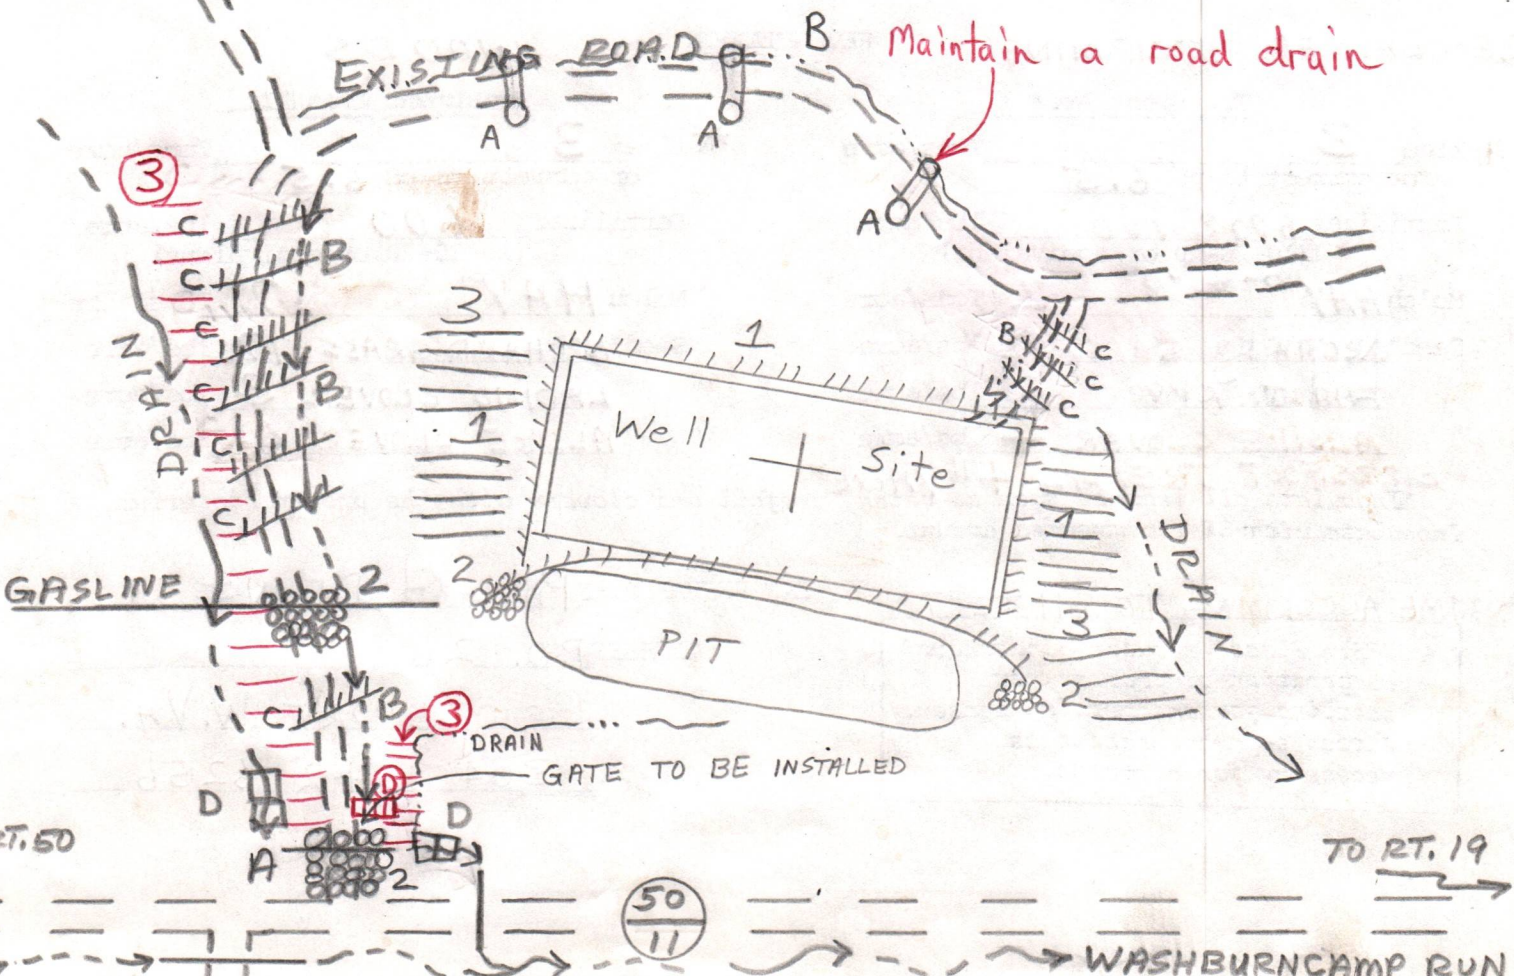 EXISTING ROAD
B
Maintain a road drain
A
A
A
3
C
B
C
C
C
B
C
C
DRAIN
3
1
1
Well Site
B
C
C
C
1
DRAIN
3
2
GASLINE
2
2
PIT
2
C
B
3
DRAIN
GATE TO BE INSTALLED
D
D
D
RT.50
A
2
TO RT. 19
50
11
WASHBURNCAMP RUN